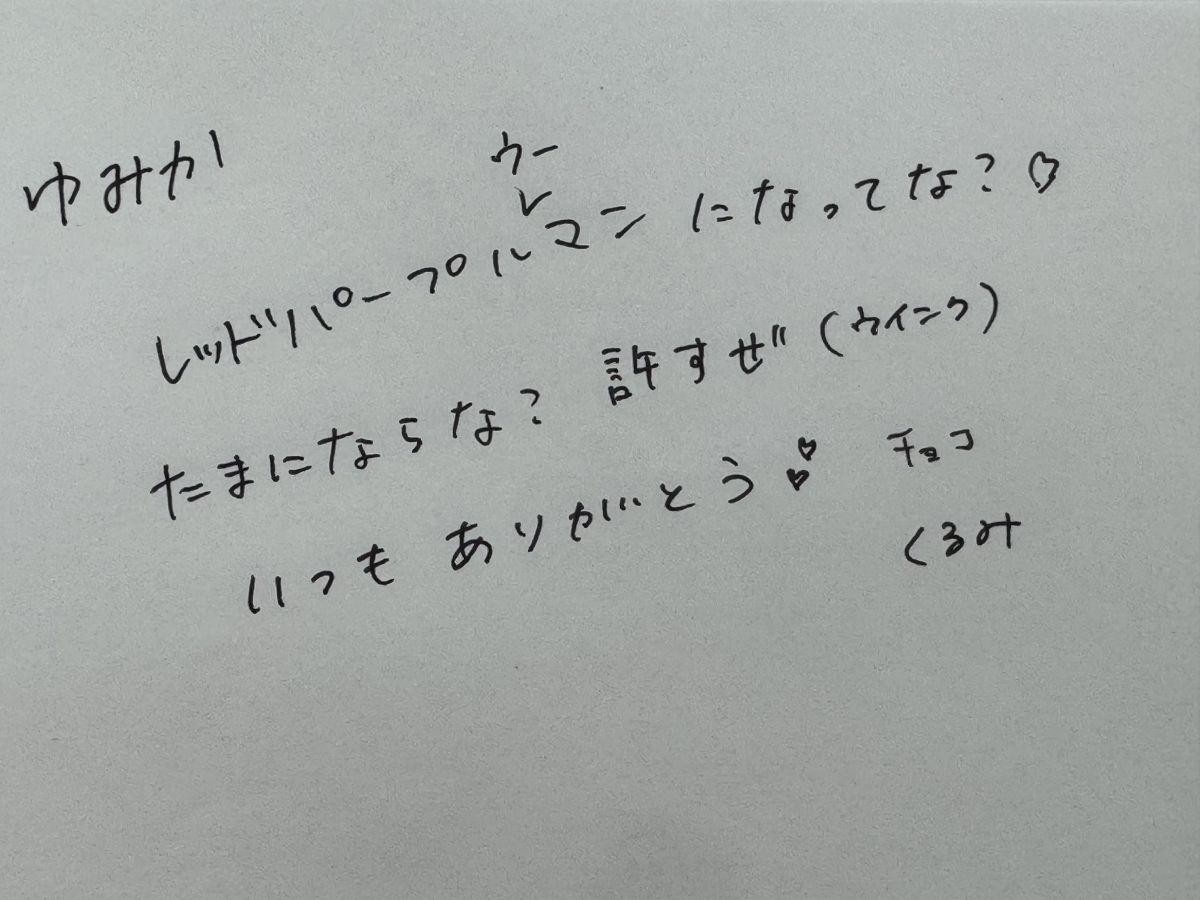 ゆみか
ウー
レッドパープルマンになってな?♡
たまにならな? 許すぜ(ウインク)
いつもありがとう♡♡ チョコ
くるみ